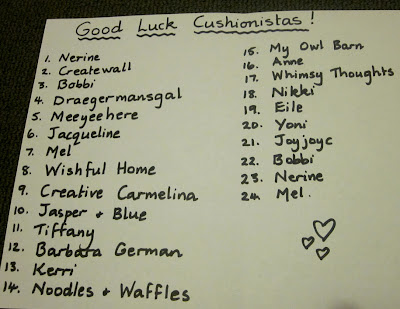 Good Luck Cushionistas!
1. Nerine
2. Createwall
3. Bobbi
4. Draegermansgal
5. Meeyeehere
6. Jacqueline
7. Mel
8. Wishful Home
9. Creative Carmelina
10. Jasper + Blue
11. Tiffany
12. Barbara German
13. Kerri
14. Noodles + Waffles
15. My Owl Barn
16. Anne
17. Whimsy Thoughts
18. Nikki
19. Eile
20. Yoni
21. Joyjoyc
22. Bobbi
23. Nerine
24. Mel.